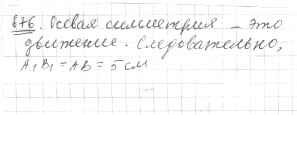 876. Осевая симметрия – это
движение. Следовательно,
A₁B₁ = AB = 5 см